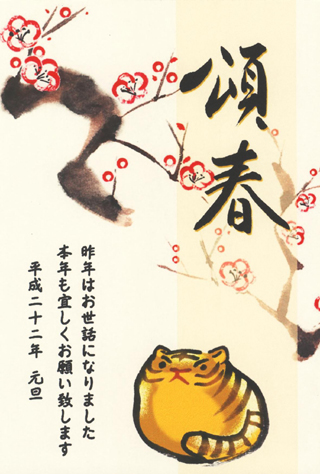 頌春
昨年はお世話になりました
本年も宜しくお願い致します
平成二十二年 元旦